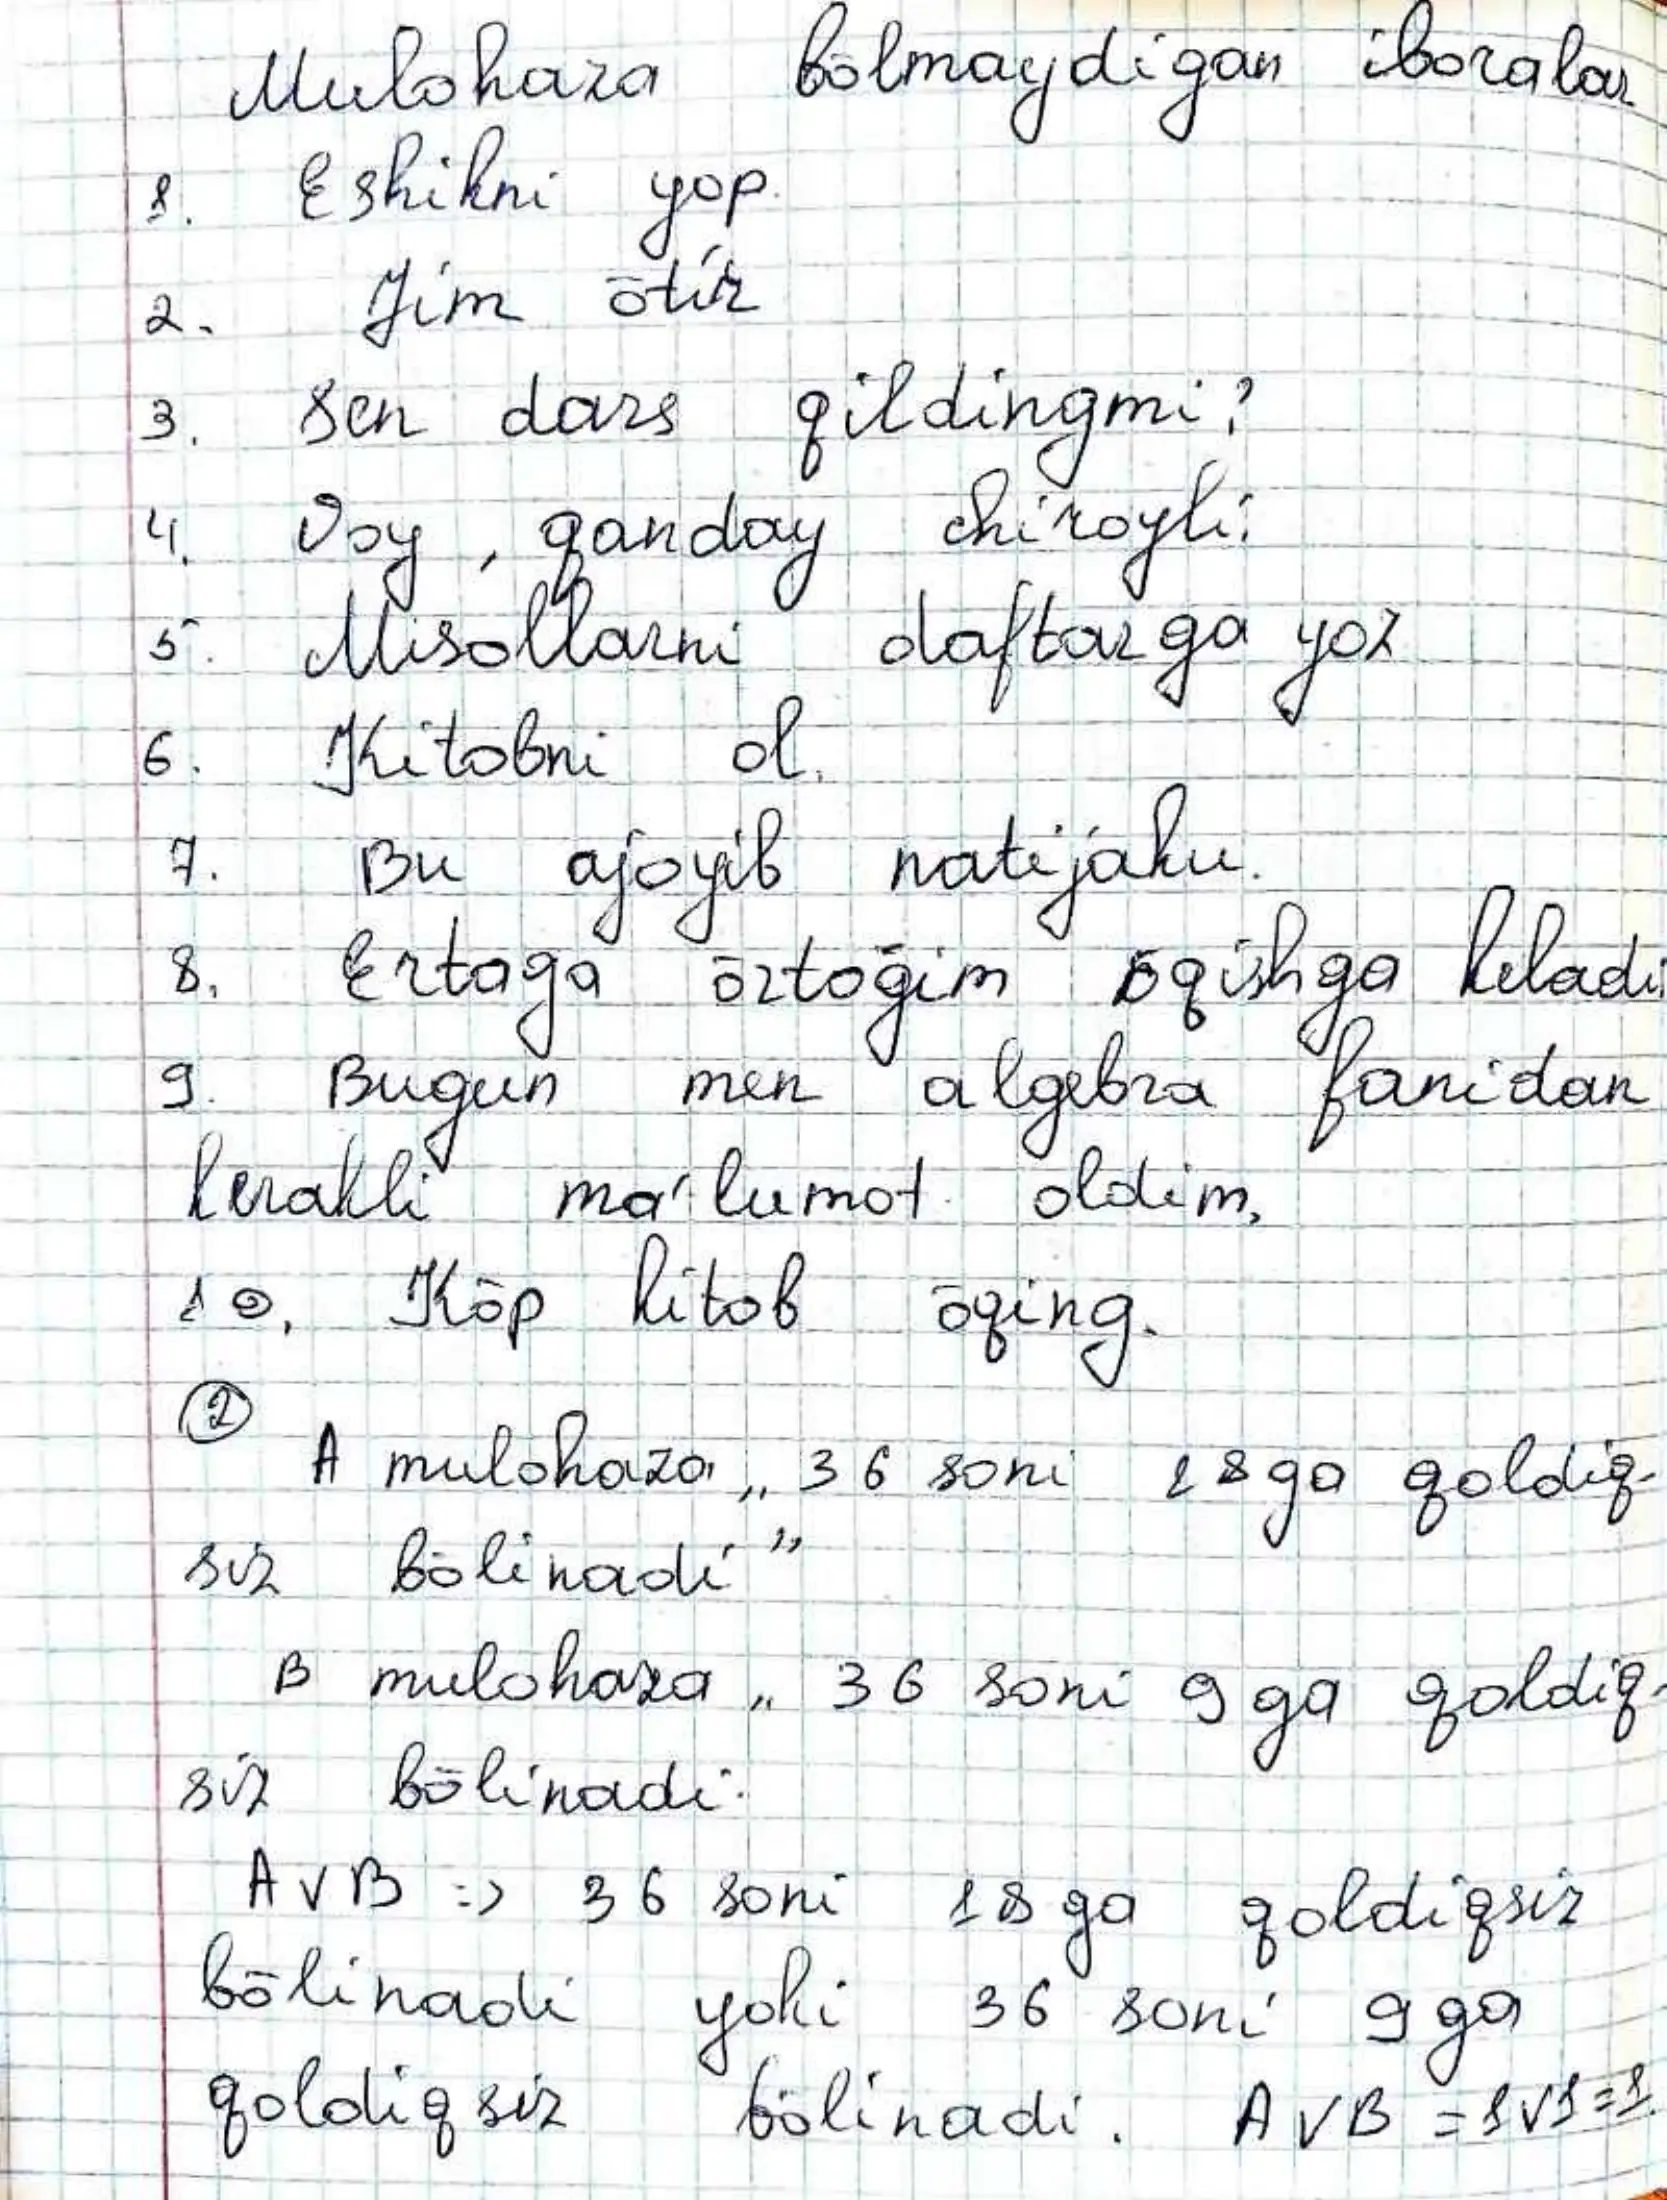 Mulohaza bōlmaydigan iboralar
1. Eshikni yop.
2. Jim ōtir
3. Sen dars qildingmi?
4. Voy, qanday chiroyli!
5. Misollarni daftarga yoz
6. Kitobni ol.
7. Bu ajoyib natijaku.
8. Ertaga ōrtoḡim ōqishga keladi
9. Bugun men algebra fanidan
kerakli ma'lumot oldim,
10. Kōp kitob ōqing.
②
A mulohaza „36 soni 18ga qoldiq-
siz bōlinadi"
B mulohaza „36 soni 9ga qoldiq-
siz bōlinadi.
A∨B => 36 soni 18ga qoldiqsiz
bōlinadi yoki 36 soni 9ga
qoldiqsiz bōlinadi. A∨B = 1∨1=1.